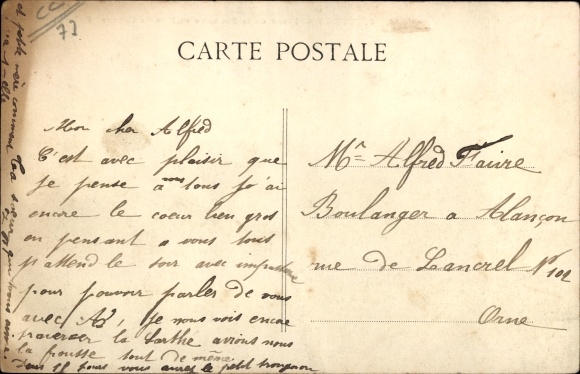 CC
77
CARTE POSTALE
Mon cher Alfred
C'est avec plaisir que
je pense a vous tous j'ai
encore le coeur bien gros
en pensant a vous tous
j'attend le soir avec
pour pouvoir parler de vous
avec je nous vois encore
traverser la Sarthe avions nous
la frousse tout de même
Dans 15 jours vous aurez le petit trognon
et petite mère comment
Mr Alfred Faure
Boulanger a Alançon
rue de Lancrel No 102
Orne